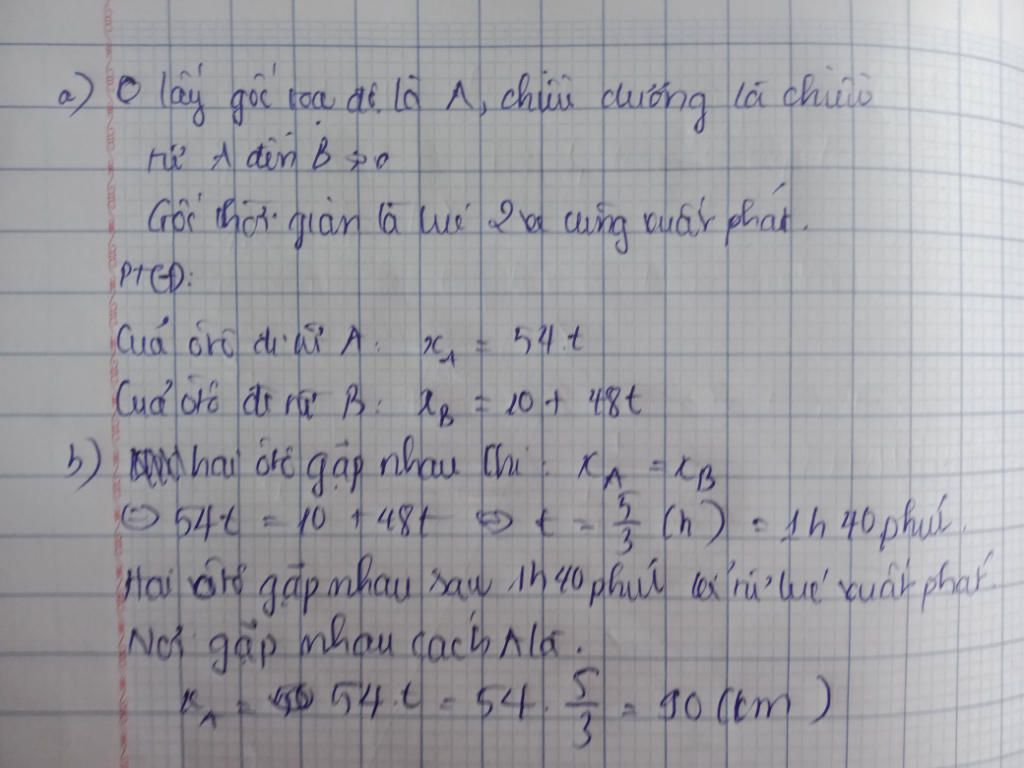 a) O lấy gốc tọa độ là A, chiều dương là chiều
từ A đến B > 0
Gốc thời gian là lúc 2 xe cùng xuất phát.
PTCĐ:
Của ôtô đi từ A: x_A = 54.t
Của ôtô đi từ B: x_B = 10 + 48t
b) hai ôtô gặp nhau khi: x_A = x_B
⇔ 54t = 10 + 48t ⇔ t = 5/3 (h) = 1h 40 phút.
Hai ôtô gặp nhau sau 1h 40 phút từ lúc xuất phát.
Nơi gặp nhau cách A là.
x_A = 54.t = 54 . 5/3 = 90 (km)